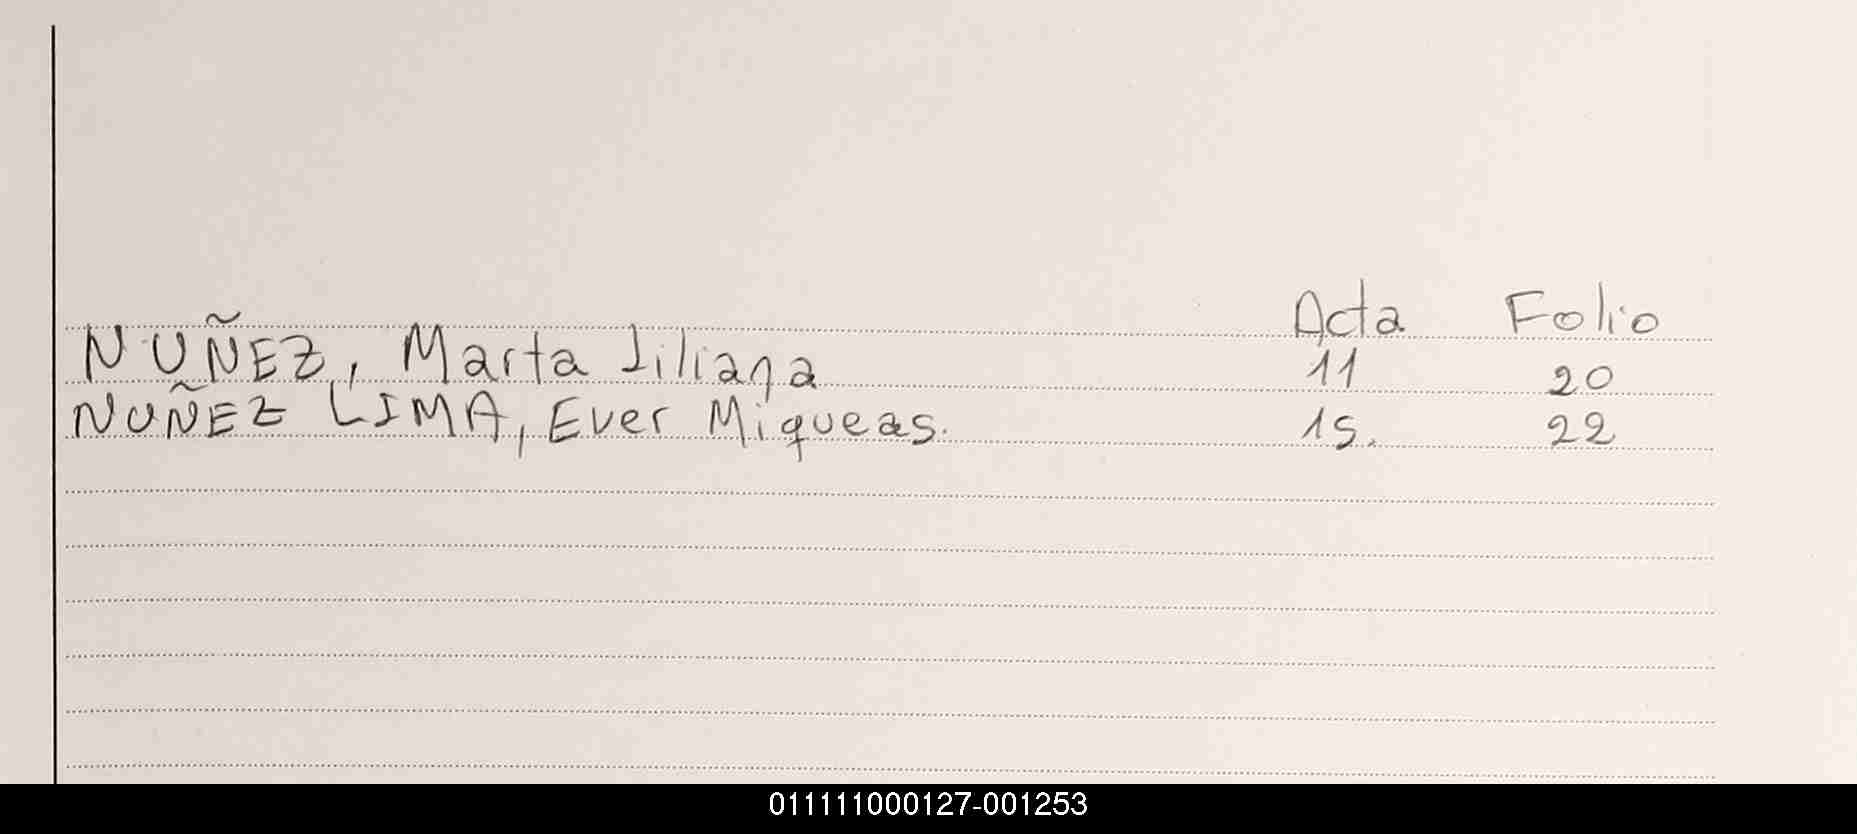 Acta Folio
NUÑEZ, Marta Liliana 11 20
NUÑEZ LIMA, Ever Miqueas. 15. 22
011111000127-001253